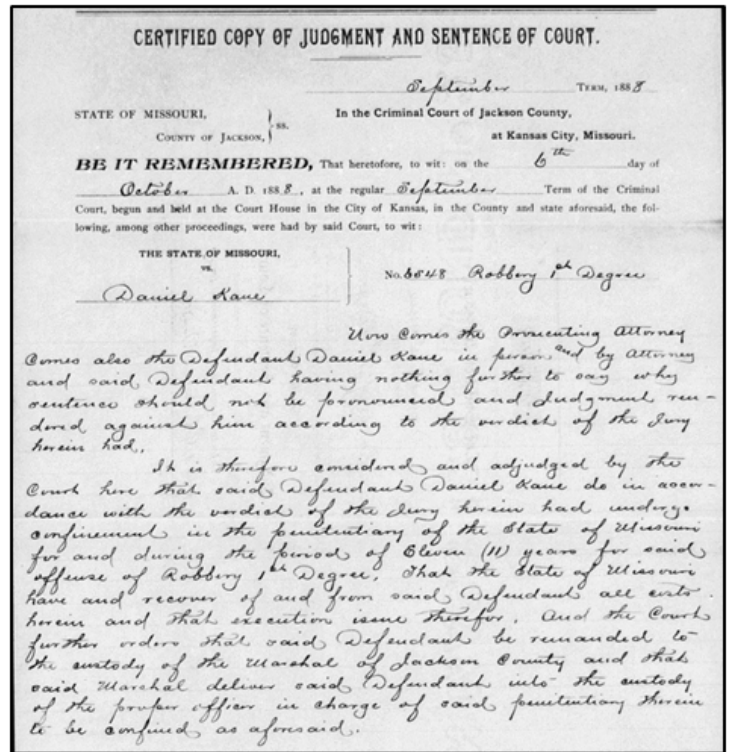 CERTIFIED COPY OF JUDGMENT AND SENTENCE OF COURT.
September TERM, 1888
STATE OF MISSOURI,
COUNTY OF JACKSON, } ss.
In the Criminal Court of Jackson County,
at Kansas City, Missouri.
BE IT REMEMBERED, That heretofore, to wit: on the 6th day of
October A. D. 1888, at the regular September Term of the Criminal
Court, begun and held at the Court House in the City of Kansas, in the County and state aforesaid, the fol-
lowing, among other proceedings, were had by said Court, to wit:
THE STATE OF MISSOURI,
vs.
Daniel Kane
No. 6548 Robbery 1st Degree
Now Comes the Prosecuting Attorney
Comes also the Defendant Daniel Kane in person and by Attorney
and said Defendant having nothing further to say why
sentence should not be pronounced and Judgment ren-
dered against him according to the verdict of the Jury
herein had,
It is therefore considered and adjudged by the
Court here that said Defendant Daniel Kane do in accor-
dance with the verdict of the Jury herein had undergo
confinement in the penitentiary of the State of Missouri
for and during the period of Eleven (11) years for said
offense of Robbery 1st Degree. That the State of Missouri
have and recover of and from said Defendant all costs
herein and that execution issue therefor. And the Court
further orders that said Defendant be remanded to
the custody of the Marshal of Jackson County and that
said Marshal deliver said Defendant into the custody
of the proper officer in charge of said penitentiary therein
to be confined as aforesaid.